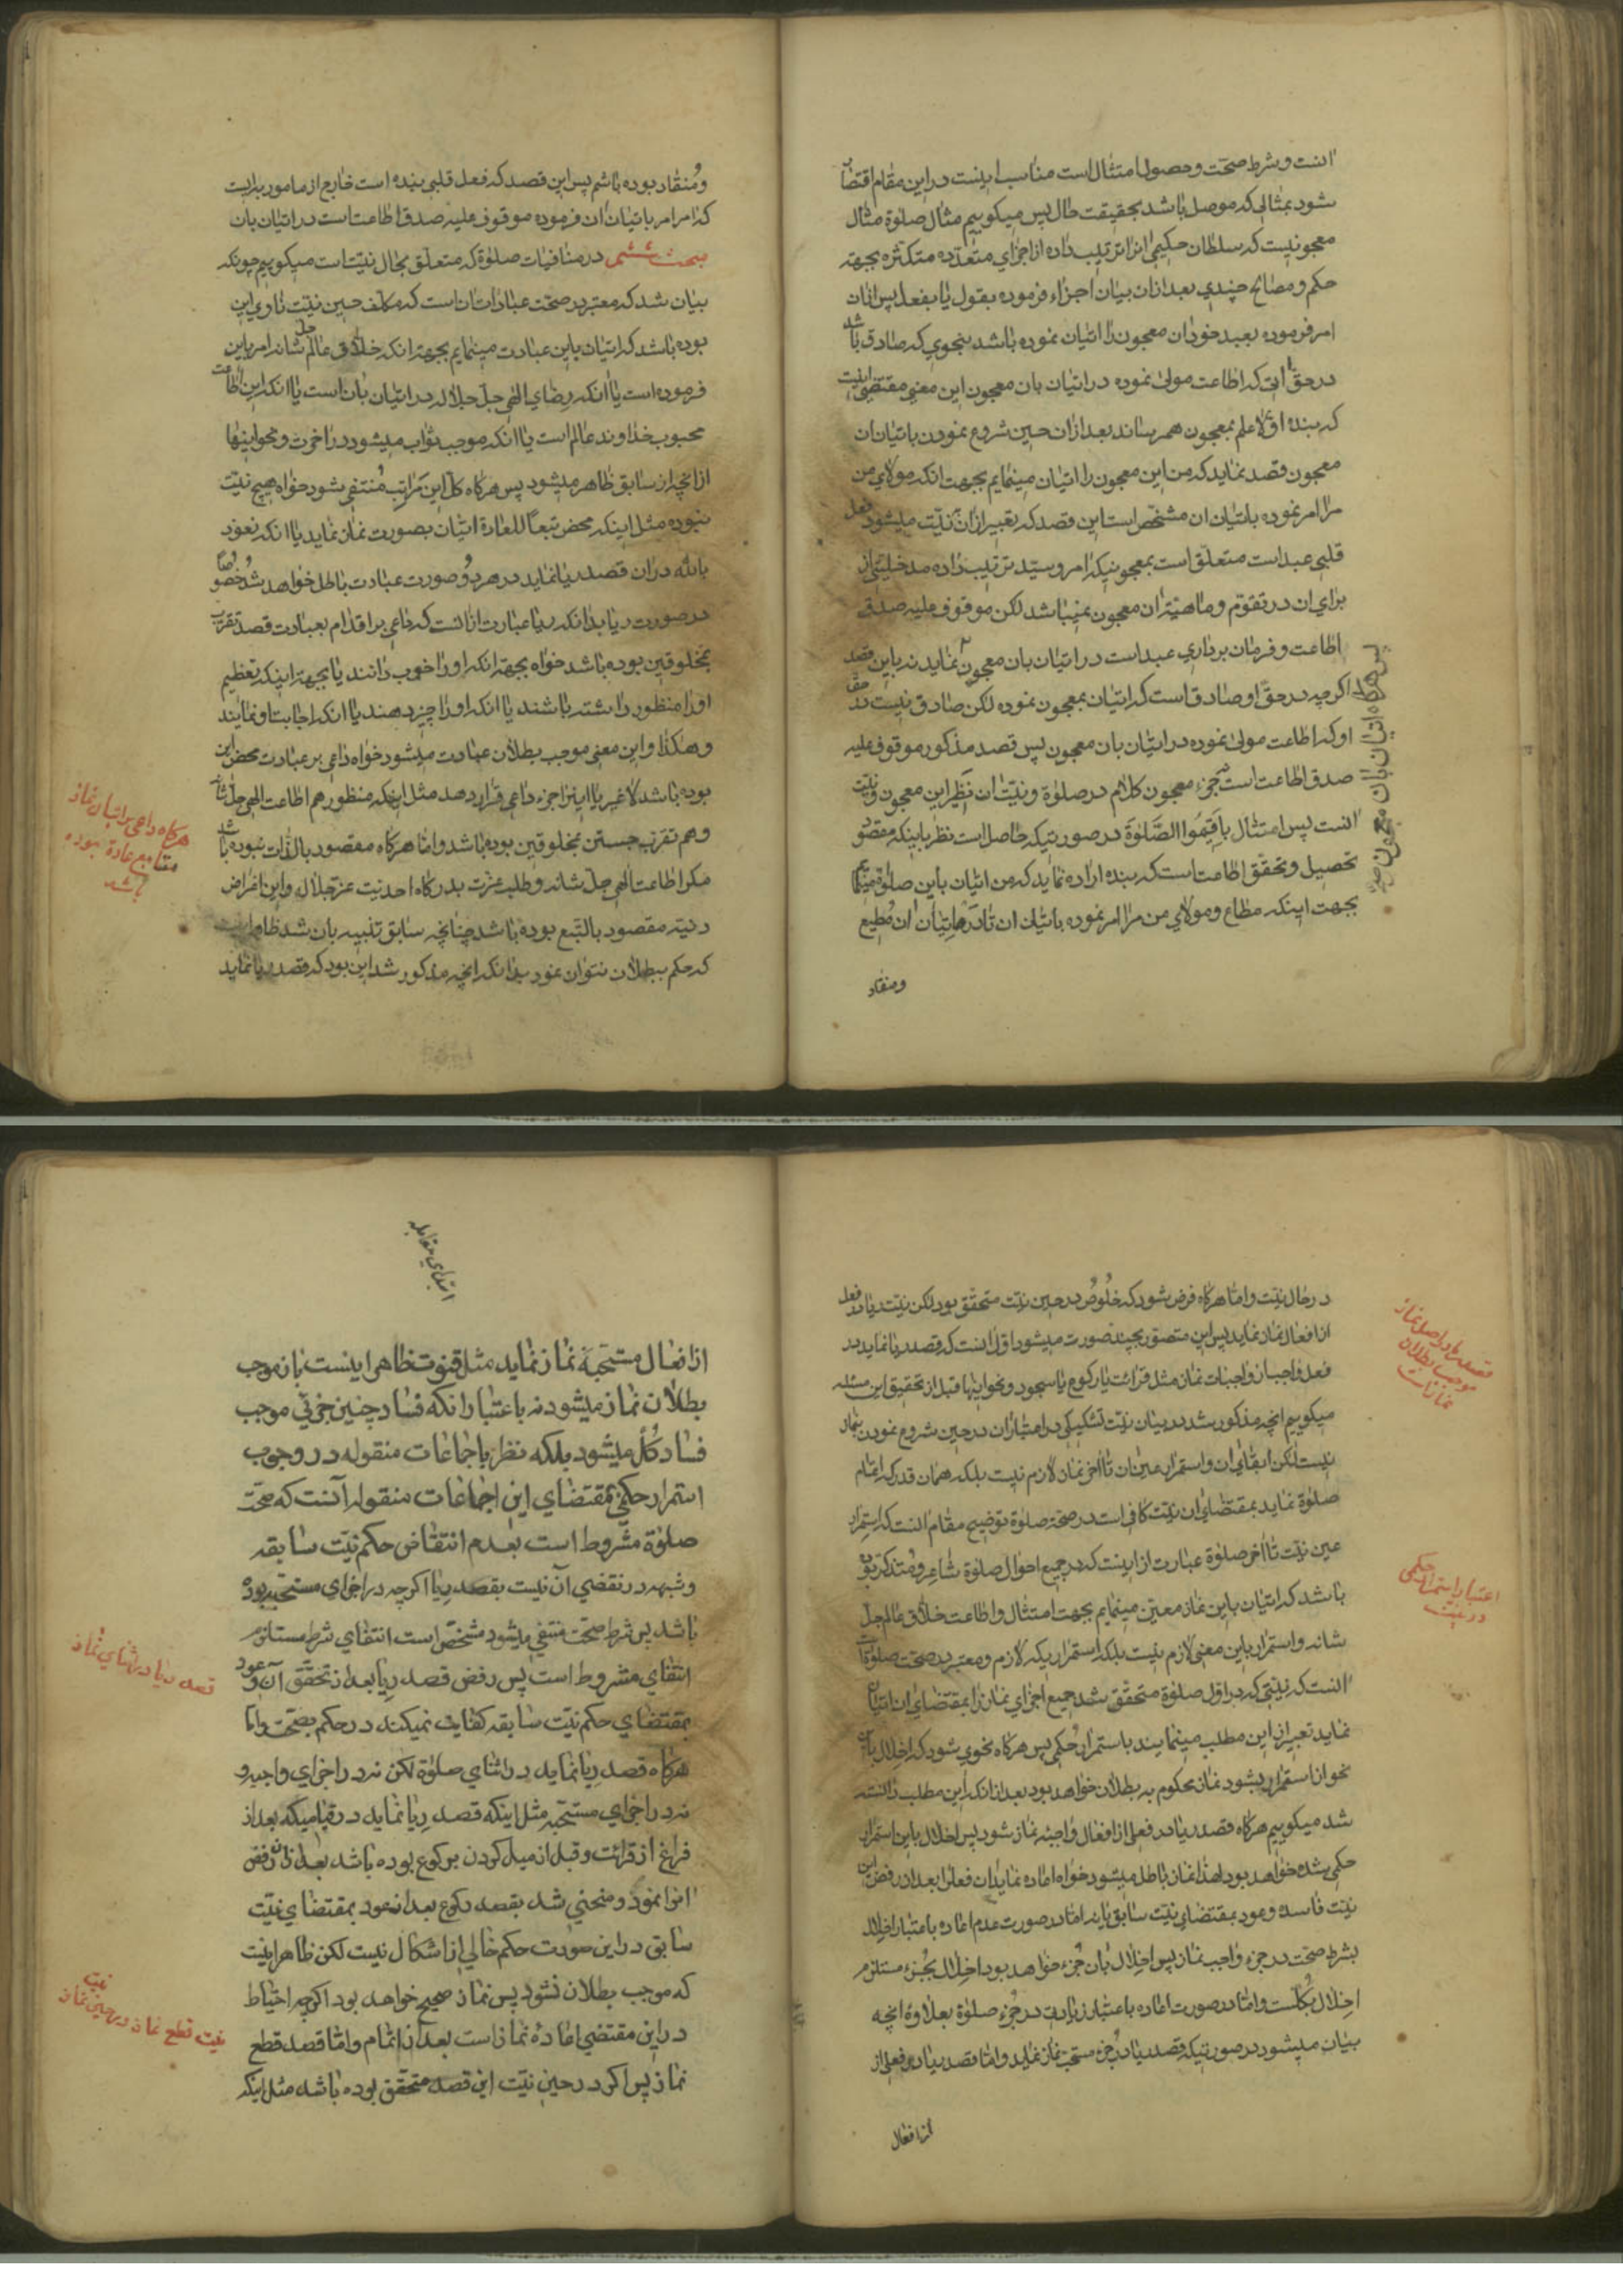 انست و شرط صحت و حصول امتثال است مناسب اینست در این مقام اقتضا
شود بمثالی که موصل باشد بحقیقت حال پس میکوییم مثال صلوة مثال
معجونیست که سلطان حکیمی انرا ترتیب داده از اجزای متعدّده متکثره بجهته
حکم و مصالح چندی بعد ازان بیان اجزاء فرموده بقول یا بفعل پس اتیان
امر فرموده بعبد خود ان معجون را اتیان نموده باشد بنحوی که صادق باشد
در حق او که اطاعت مولی نموده در اتیان بان معجون این معنی مقتضی اینست
که بنده اولا علم بمعجون همرساند بعد ازان حین شروع نمودن باتیان ان
معجون قصد نماید که من این معجون را اتیان مینمایم بجهت انکه مولای من
مرا امر نموده باتیان ان مشخص است این قصد که تعبیر ازان نیّت میشود فعل
قلبی عبد است متعلّق است بمعجونیکه امر و سیّد ترتیب داده مدخلیتی از
برای ان در تقوّم و ماهیّة ان معجون نمیباشد لکن موقوف علیه صدق
اطاعت و فرمان برداری عبد است در اتیان بان معجون نماید نه باین قصد
پس هرگاه اتیان بان معجون
اکرچه در حقّ او صادق است که اتیان بمعجون نموده لکن صادق نیست در حق
او که اطاعت مولی نموده در اتیان بان معجون پس قصد مذکور موقوف علیه
صدق اطاعت است نه جزء معجون کلام در صلوة و نیّت ان نظیر این معجون و نیّت
انست پس امتثال باقیموا الصّلوة در صورتیکه حاصل است نظر باینکه مقصود
تحصیل و تحقّق اطاعت است که بنده اراده نماید که من اتیان باین صلوة مینمایم
بجهت اینکه مطاع و مولای من مرا امر نموده باتیان ان تا در اتیان ان مُطیع
ومنقاد
ومُنقاد بوده باشم پس این قصد که فعل قلبی بنده است خارج از مامور به است
که امر امر باتیان ان فرموده موقوف علیه صدق اطاعت است در اتیان بان
مبحث ششم در منافیات صلوة که متعلّق بحال نیّت است میکوییم چونکه
بیان شد که معتبر در صحّت عبادات ان است که مکلف حین نیّت ناوی این
بوده باشد که اتیان باین عبادت مینمایم بجهته انکه خلاق عالم جل شانه امر باین
فرموده است یا انکه رضای الهی جلّ جلاله در اتیان بان است یا انکه این اطاعت
محبوب خداوند عالم است یا انکه موجب ثواب میشود در اخرت و نحو اینها
از انچه از سابق ظاهر میشود پس هرگاه کلّ این مراتب مُنتفی شود خواه هیچ نیّت
نبوده مثل اینکه محض تبعاً للعادة اتیان بصورت نماز نماید یا انکه نعوذ
بالله دران قصد ریا نماید در هر دُو صورت عبادت باطل خواهد شد خصوصًا
در صورت ریا بدانکه ریا عبارت از انست که داعی بر اقدام بعبادت قصد تقرب
بمخلوقین بوده باشد خواه بجهته انکه او را خوب دانند یا بجهته اینکه تعظیم
او را منظور داشته باشند یا انکه او را چیز دهند یا انکه اجابت او نمایند
وهکذا و این معنی موجب بطلان عبادت میشود خواه داعی بر عبادت محض این
بوده باشد لا غیر یا اینرا جزء داعی قرار دهد مثل اینکه منظور هم اطاعت الهی جل شانه
وهم تقرّب جستن بمخلوقین بوده باشد و امّا هرگاه مقصود بالذّات نبوده باشد
مکر اطاعت الهی جلّ شانه و طلب عزّت بدرکاه احدیّت عزّ جلاله و این اغراض
دنیّه مقصود بالتّبع بوده باشد چنانچه سابق تنبیه بان شد ظاهر اینست
که حکم ببطلان نتوان نمود بدانکه انچه مذکور شد این بود که قصد ریا نماید
هرگاه داعی بر اتیان نماز
متابع عادة بوده
باشد
در حال نیّت و امّا هرگاه فرض شود که خُلوصُ در حین نیّت متحقّق بود لکن نیّت ریا در فعل
از افعال نماز نماید پس این متصوّر بچند صورت میشود اوّل انست که قصد ریا نماید در
فعل واجب از واجبات نماز مثل قرائت یا رکوع یا سجود و نحو اینها قبل از تحقیق این مسئله
میکوییم انچه مذکور شد در بیان نیّت تشکیکی در اعتبار ان در حین شروع نمودن بنماز
نیست لکن ابقای ان و استمرار عین ان تا اخر نماز لازم نیست بلکه همان قدر که اتمام
صلوة نماید بمقتضای ان نیّت کافی است در صحّة صلوة توضیح مقام انست که استمرار
عین نیّت تا اخر صلوة عبارت از اینست که در جمیع احوال صلوة شاعر و مُتذکّر بوده
باشد که اتیان باین نماز معیّن مینمایم بجهت امتثال و اطاعت خلاق عالم جلّ
شانه و استمرار باین معنی لازم نیست بلکه استمراریکه لازم و معتبر در صحّت صلوة است
انست که نیّتی که در اوّل صلوة متحقّق شد جمیع اجزای نماز را بمقتضای ان اتیان
نماید تعبیر از این مطلب مینمایند باستمرار حُکمی پس هرگاه نحوی شود که اخلال باین
نحو از استمرار بشود نماز محکوم به بطلان خواهد بود بعد از انکه این مطلب دانسته
شد میکوییم هرگاه قصد ریا در فعلی از افعال واجبه نماز شود پس اخلال باین استمرار
حکمی شده خواهد بود لهذا نماز باطل میشود خواه اعاده نماید ان فعل را بعد از رفض این
نیّت فاسده و عود بمقتضای نیّت سابق یا نه امّا در صورت عدم اعاده باعتبار اخلال
بشرط صحّت در جزء واجب نماز پس اخلال بان جُزء خواهد بود اخلال بجُزء مستلزم
اخلال بکلّست و امّا در صورت اعاده باعتبار زیادت در جُزء صلوة بعلاوهٔ انچه
بیان میشود در صورتیکه قصد ریا در جزء مستحب نماز نماید و امّا قصد ریا در فعلی از
از افعال
قصد ریا در اصل نماز
موجب بطلان
نماز است
اعتبار استمرار حکمی
در نیّت
ابتدای مقابله
از افعال مستحبّهٔ نماز نماید مثل قنوت ظاهر اینست باز موجب
بطلان نماز میشود نه باعتبار انکه فساد چنین جزئی موجب
فساد کُلّ میشود بلکه نظر باجماعات منقوله در وجوب
استمرار حکمی بمقتضای این اجماعات منقوله آنست که صحّت
صلوة مشروط است بعدم انتقاض حکم نیّت سابقه
وشبهه در نقضی آن نیست بقصد ریا اکرچه در اجزای مستحبّه بوده
باشد پس شرط صحّت منتفی میشود مشخّص است انتفای شرط مستلزم
انتفای مشروط است پس رفض قصد ریا بعد از تحقّق آن و عود
بمقتضای حکم نیّت سابقه کفایت نمیکند در حکم بصحّت و امّا
هرگاه قصد ریا نماید در اثنای صلوة لکن نه در اجزای واجبه و
نه در اجزای مستحبّه مثل اینکه قصد ریا نماید در قیامیکه بعد از
فراغ از قرائت و قبل از میل کردن برکوع بوده باشد بعد ازان رفض
انرا نمود و منحنی شد بقصد رکوع بعد از عود بمقتضای نیّت
سابق در این صورت حکم خالی از اشکال نیست لکن ظاهر اینست
که موجب بطلان نشود پس نماز صحیح خواهد بود اکرچه احتیاط
در این مقتضی اعادهٔ نماز است بعد از اتمام و امّا قصد قطع
نماز پس اکر در حین نیّت این قصد متحقّق بوده باشد مثل اینکه
قصد ریا در اثنای نماز
نیّت قطع نماز در حین نماز
نیت